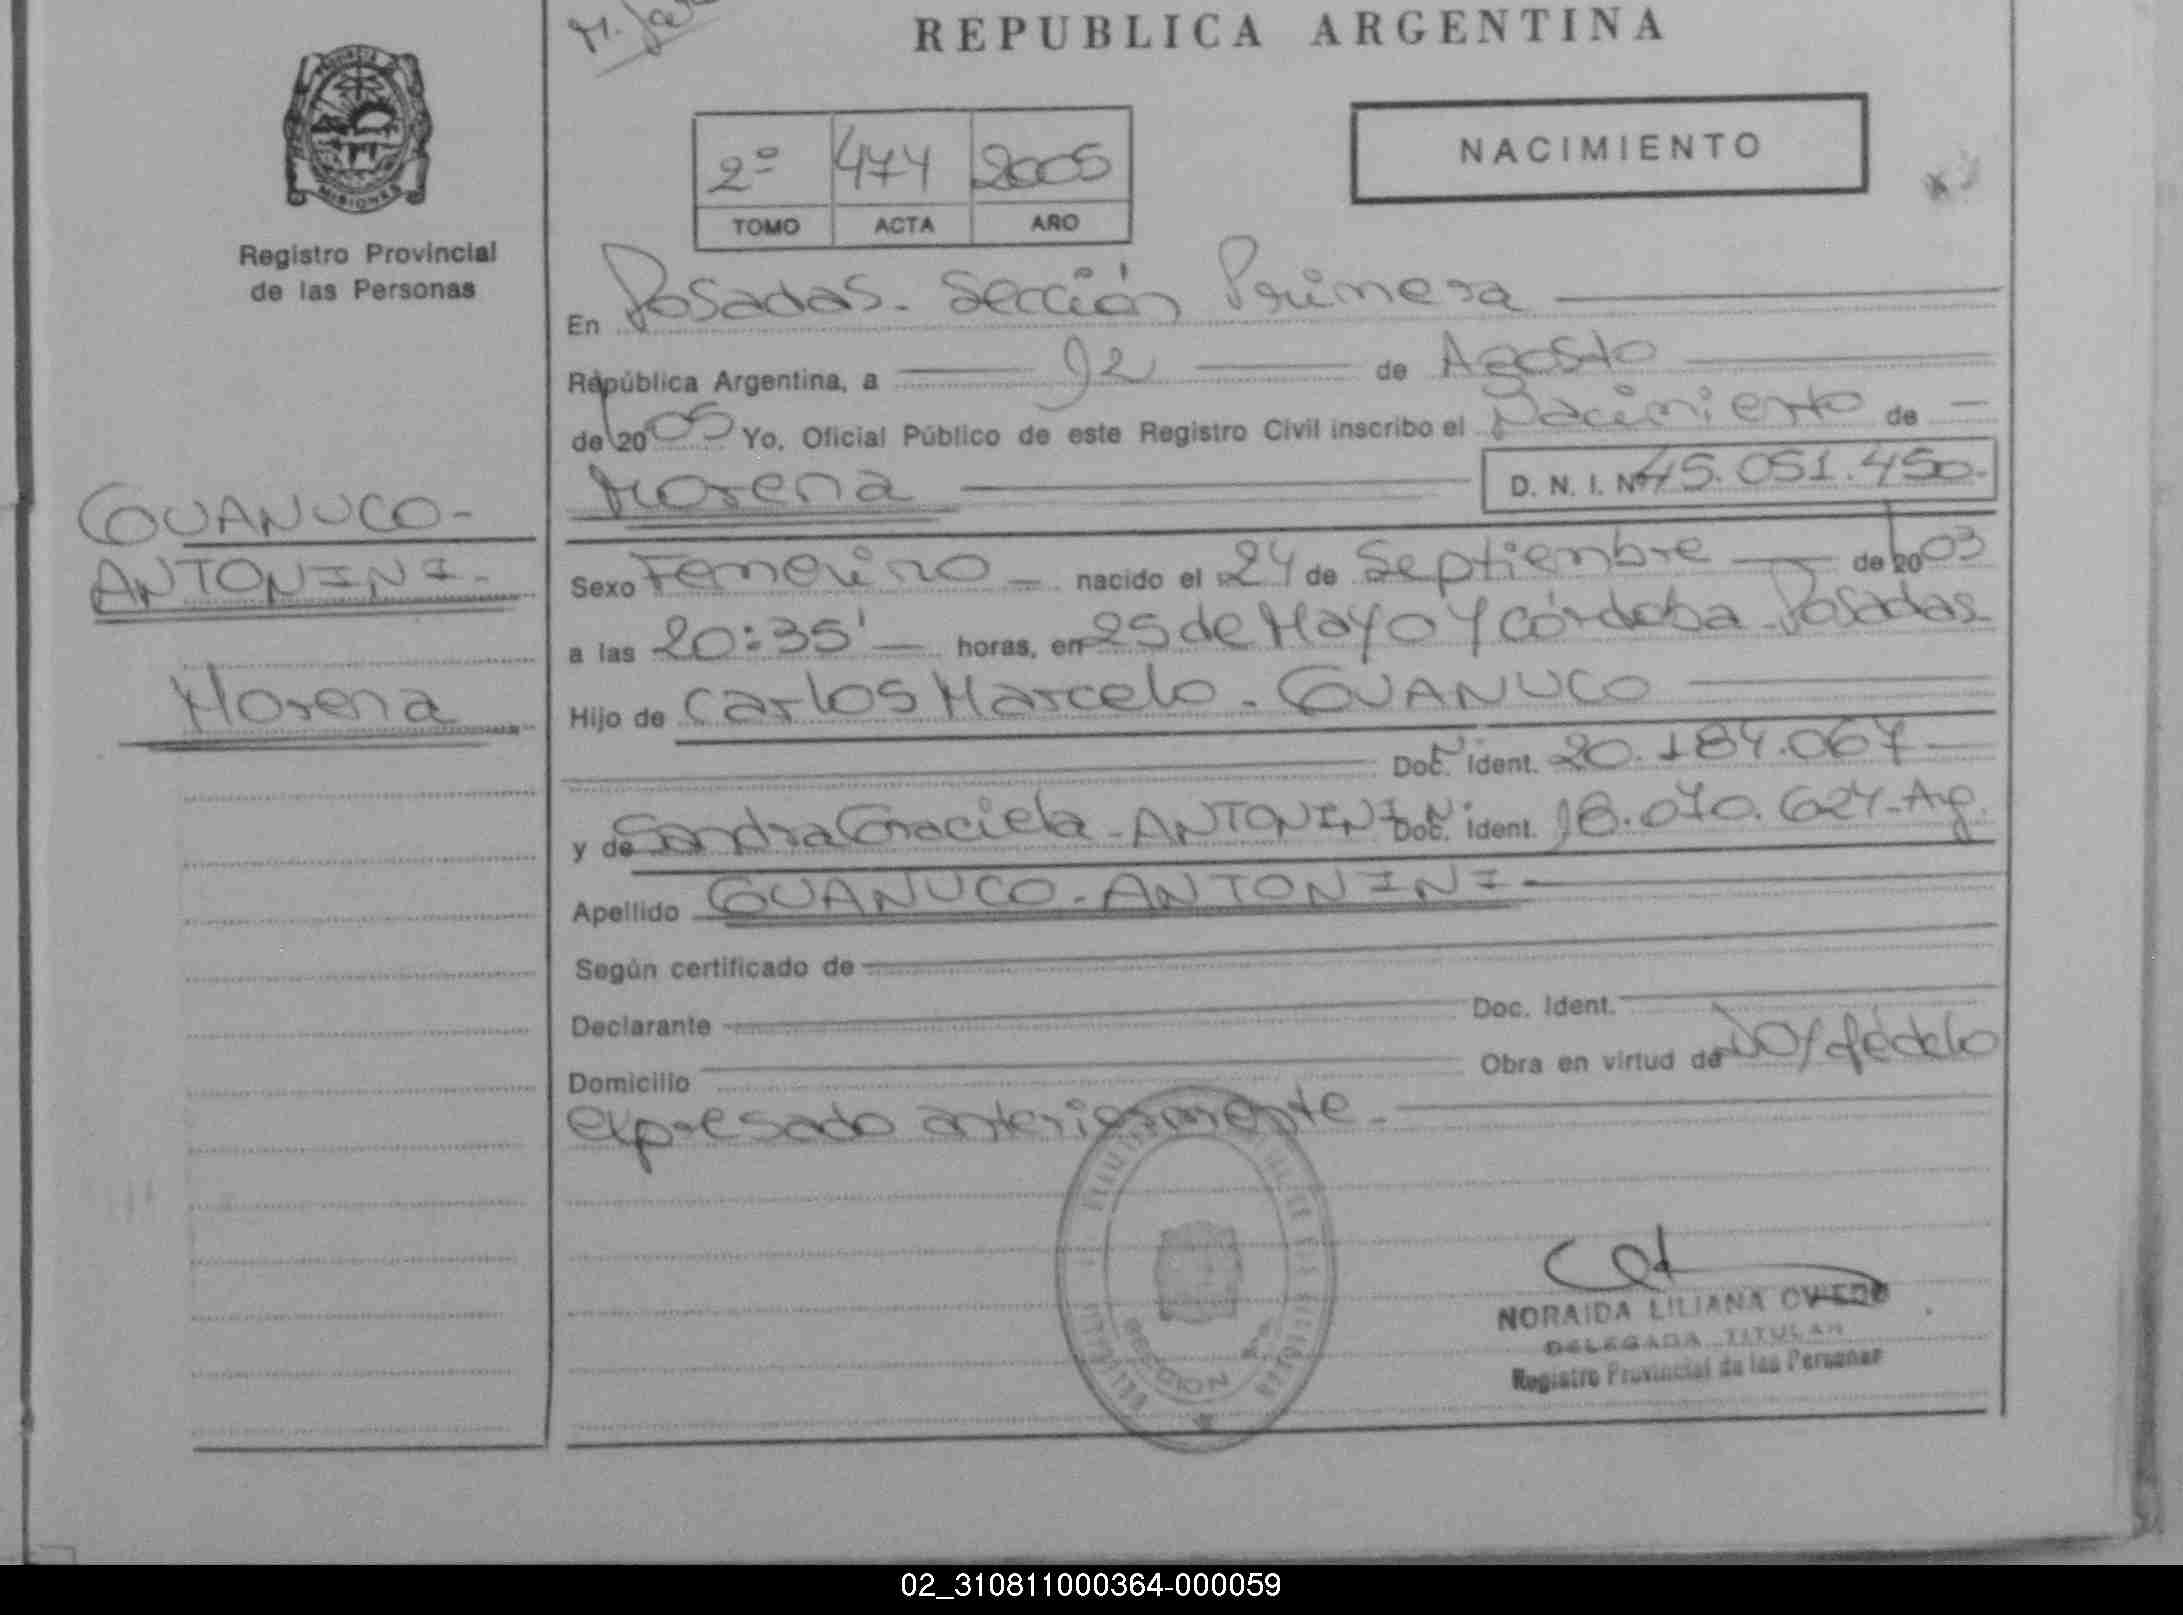 REPUBLICA ARGENTINA
PROVINCIA DE
MISIONES
Registro Provincial
de las Personas
2º 474 2005
TOMO ACTA AÑO
NACIMIENTO
En Posadas. Sección Primera
República Argentina, a 02 de Agosto
de 2005 Yo, Oficial Público de este Registro Civil inscribo el Nacimiento de
Morena D. N. I. Nº 45.051.450.
GUANUCO-
ANTONINI-
Morena
Sexo Femenino nacido el 24 de Septiembre de 2003
a las 20:35' horas, en 25 de Mayo y Córdoba Posadas
Hijo de Carlos Marcelo. GUANUCO
Doc. Ident. 20.184.067
y de Sandra Graciela - ANTONINI Doc. Ident. 18.070.627-Ag.
Apellido GUANUCO-ANTONINI
Según certificado de
Declarante Doc. Ident.
Domicilio Obra en virtud de Doy fé de lo
expresado anteriormente.
SECCION
NORAIDA LILIANA OVIEDO
DELEGADA TITULAR
Registro Provincial de las Personas
02_310811000364-000059